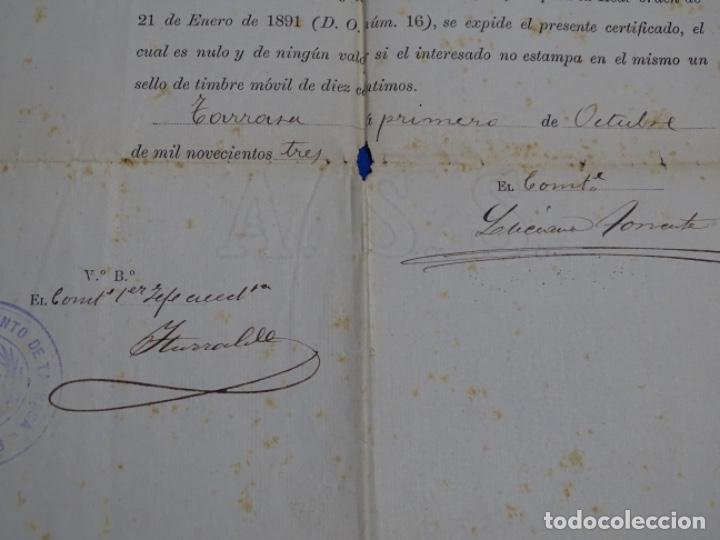 21 de Enero de 1891 (D. O. núm. 16), se expide el presente certificado, el
cual es nulo y de ningún valor si el interesado no estampa en el mismo un
sello de timbre móvil de diez céntimos.
Tarrasa á primero de Octubre
de mil novecientos tres
EL Comte
Luciano
V.º B.º
EL Comte 1er Jefe accdtal
Iturralde
NTO DE TA
todocoleccion.net